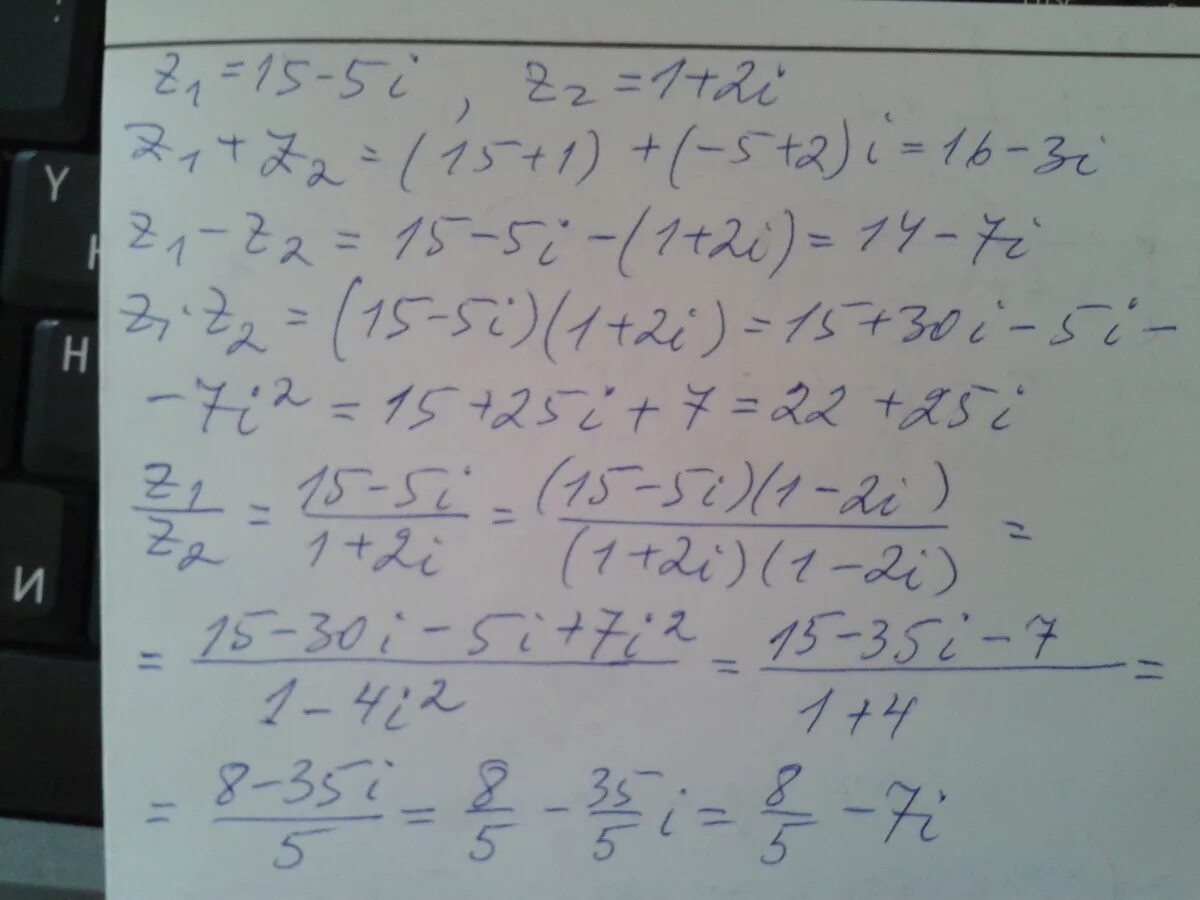 z₁ = 15 - 5i , z₂ = 1 + 2i
z₁ + z₂ = (15 + 1) + (-5 + 2)i = 16 - 3i
z₁ - z₂ = 15 - 5i - (1 + 2i) = 14 - 7i
z₁ · z₂ = (15 - 5i)(1 + 2i) = 15 + 30i - 5i -
- 7i² = 15 + 25i + 7 = 22 + 25i
z₁/z₂ = (15 - 5i)/(1 + 2i) = ((15 - 5i)(1 - 2i))/((1 + 2i)(1 - 2i)) =
= (15 - 30i - 5i + 7i²)/(1 - 4i²) = (15 - 35i - 7)/(1 + 4) =
= (8 - 35i)/5 = 8/5 - 35/5 i = 8/5 - 7i
Y
H
И